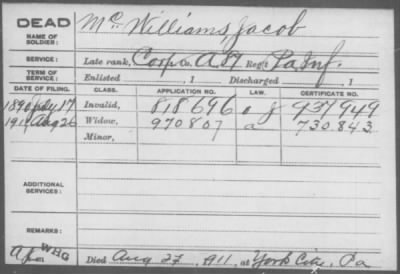 DEAD
NAME OF SOLDIER: McWilliams, Jacob
SERVICE: Late rank, Corp Co. A Reg't Pa Inf.
TERM OF SERVICE: Enlisted , 1 Discharged , 1
DATE OF FILING. CLASS. APPLICATION NO. LAW. CERTIFICATE NO.
1890 July 17 Invalid, 818696 937949
1911 Aug 26 Widow, 970807 a 730.843
Minor,
ADDITIONAL SERVICES:
REMARKS:
WHG
Died Aug 1911, at York City, Pa